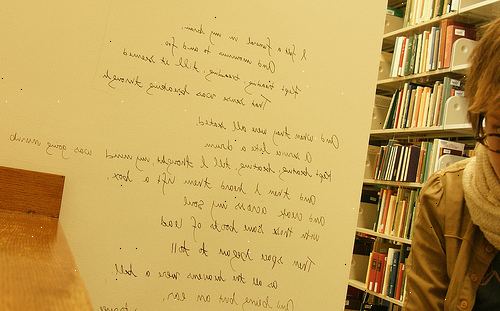 I felt a funeral in my brain,
And mourners to and fro
Kept treading, treading, till it seemed
That sense was breaking through
And when they all were seated
A service like a drum
Kept beating, beating, till I thought my mind
was going numb
And then I heard them lift a box,
And creak across my soul
with those same boots of lead
Then space began to toll
as all the heavens were a bell
And being but an ear,